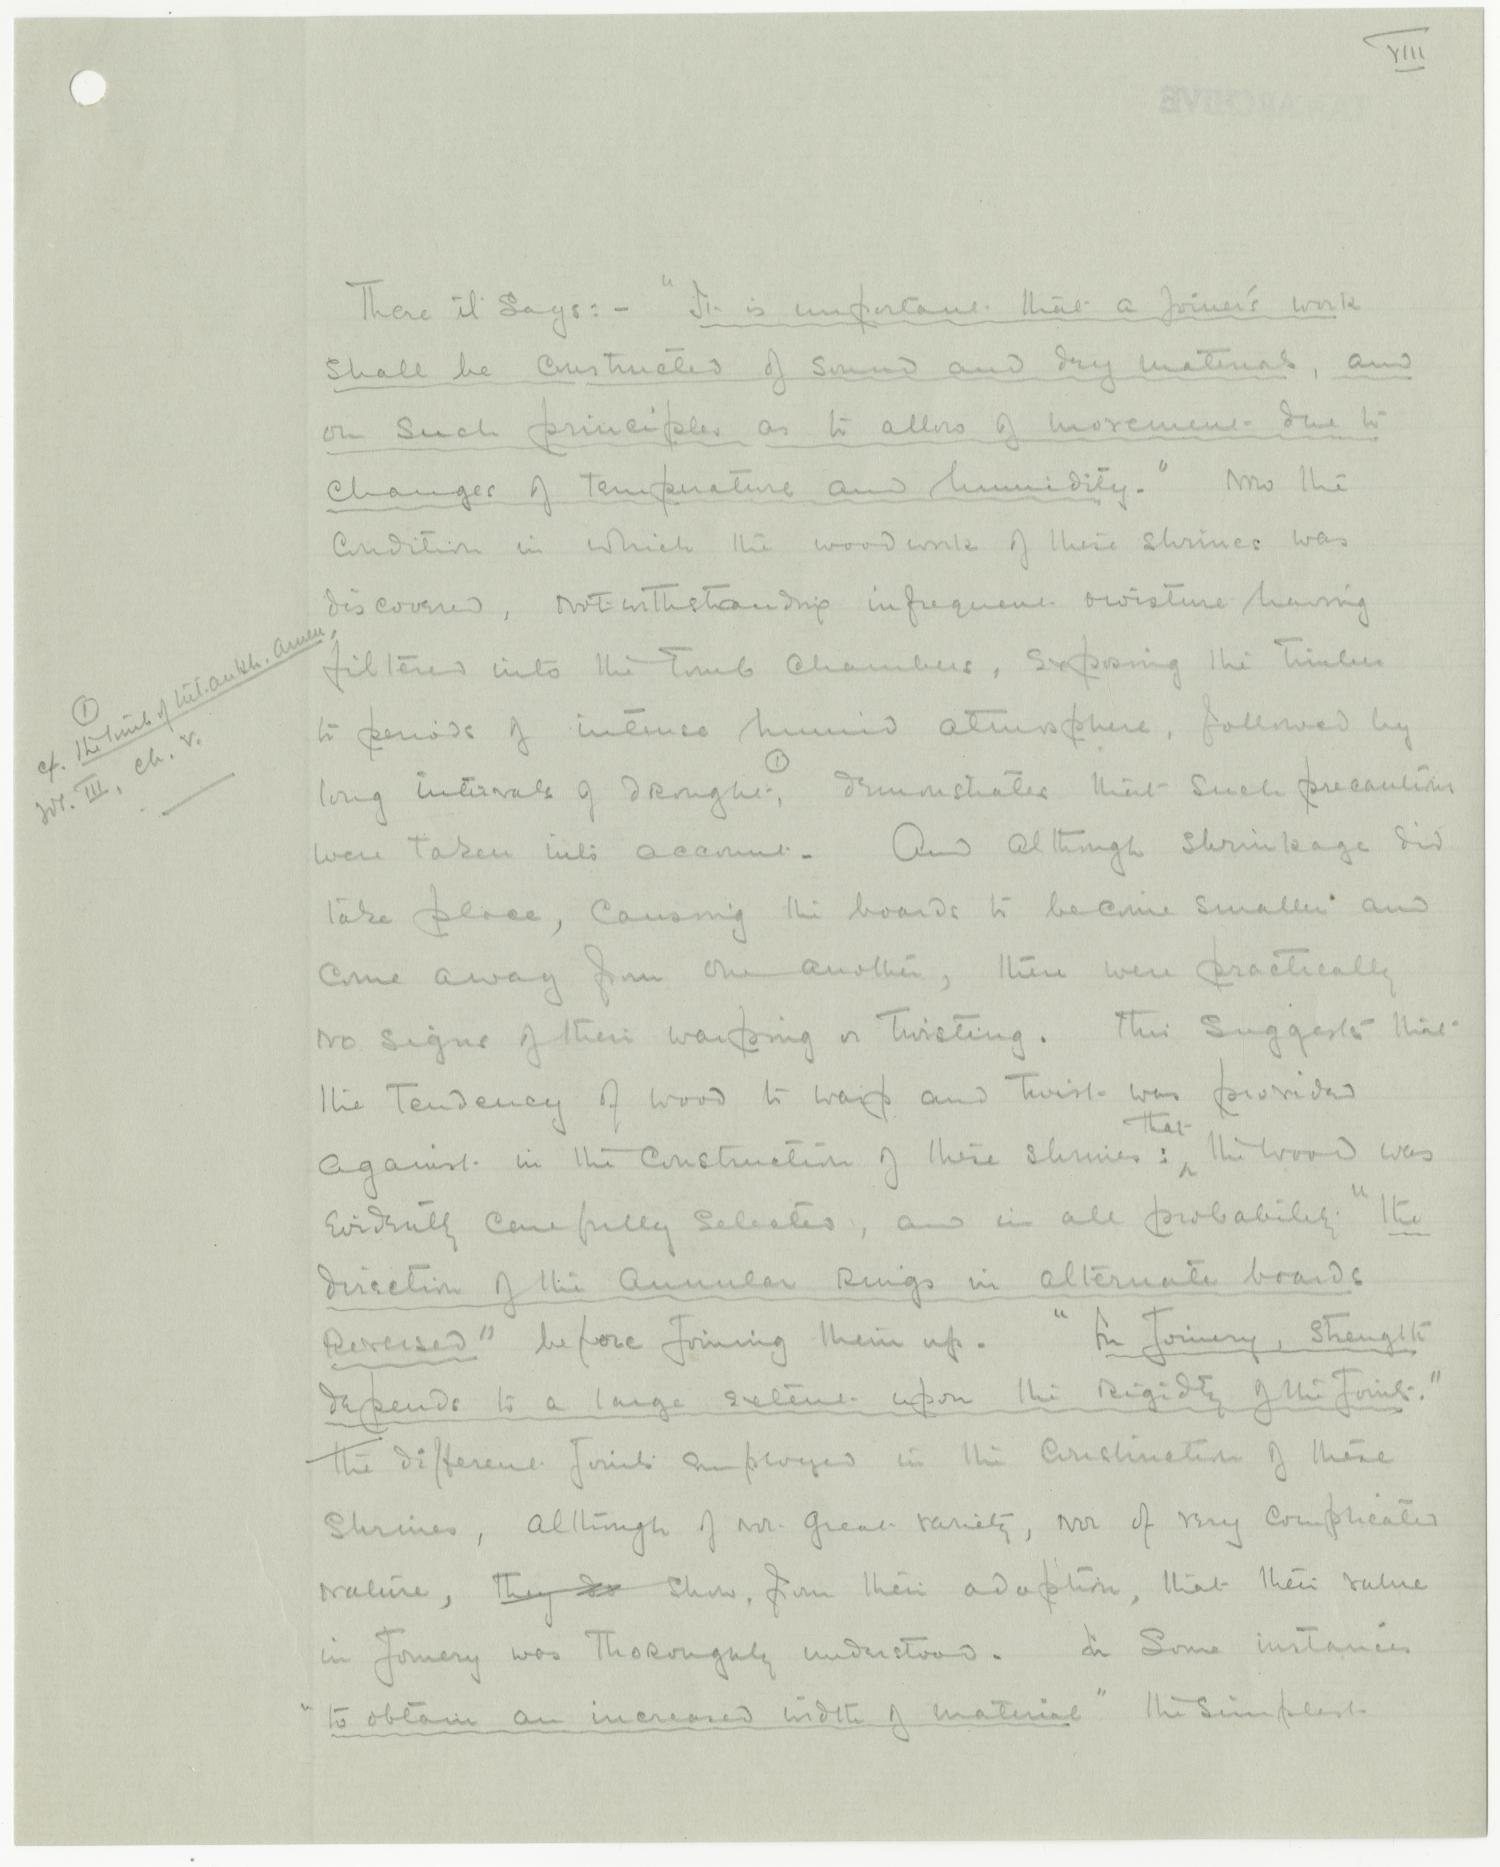 VIII
There it says:- "It is important that a Joiner's work
shall be constructed of sound and dry materials, and
on such principles as to allow of movement due to
changes of temperature and humidity." Now the
condition in which the woodwork of these shrines was
discovered, notwithstanding infrequent moisture having
filtered into the Tomb Chambers, exposing the timber
to periods of intense humid atmosphere, followed by
long intervals of drought①, demonstrates that such precautions
were taken into account. And although shrinkage did
take place, causing the boards to become smaller and
come away from one another, there were practically
no signs of their warping or twisting. This suggests that
the tendency of wood to warp and twist was provided
against in the construction of these shrines: that the wood was
evidently carefully selected, and in all probability "the
direction of the annular rings in alternate boards
reversed" before joining them up. "In Joinery, strength
depends to a large extent upon the rigidity of the Joint."
The different Joints employed in the construction of these
Shrines, although of not great variety, nor of very complicated
nature, they do show, from their adoption, that their value
in Joinery was thoroughly understood. In some instances
"to obtain an increased width of material" the simplest
①
cf. The Tomb of Tut.ankh.Amen,
Vol. III, ch. V.